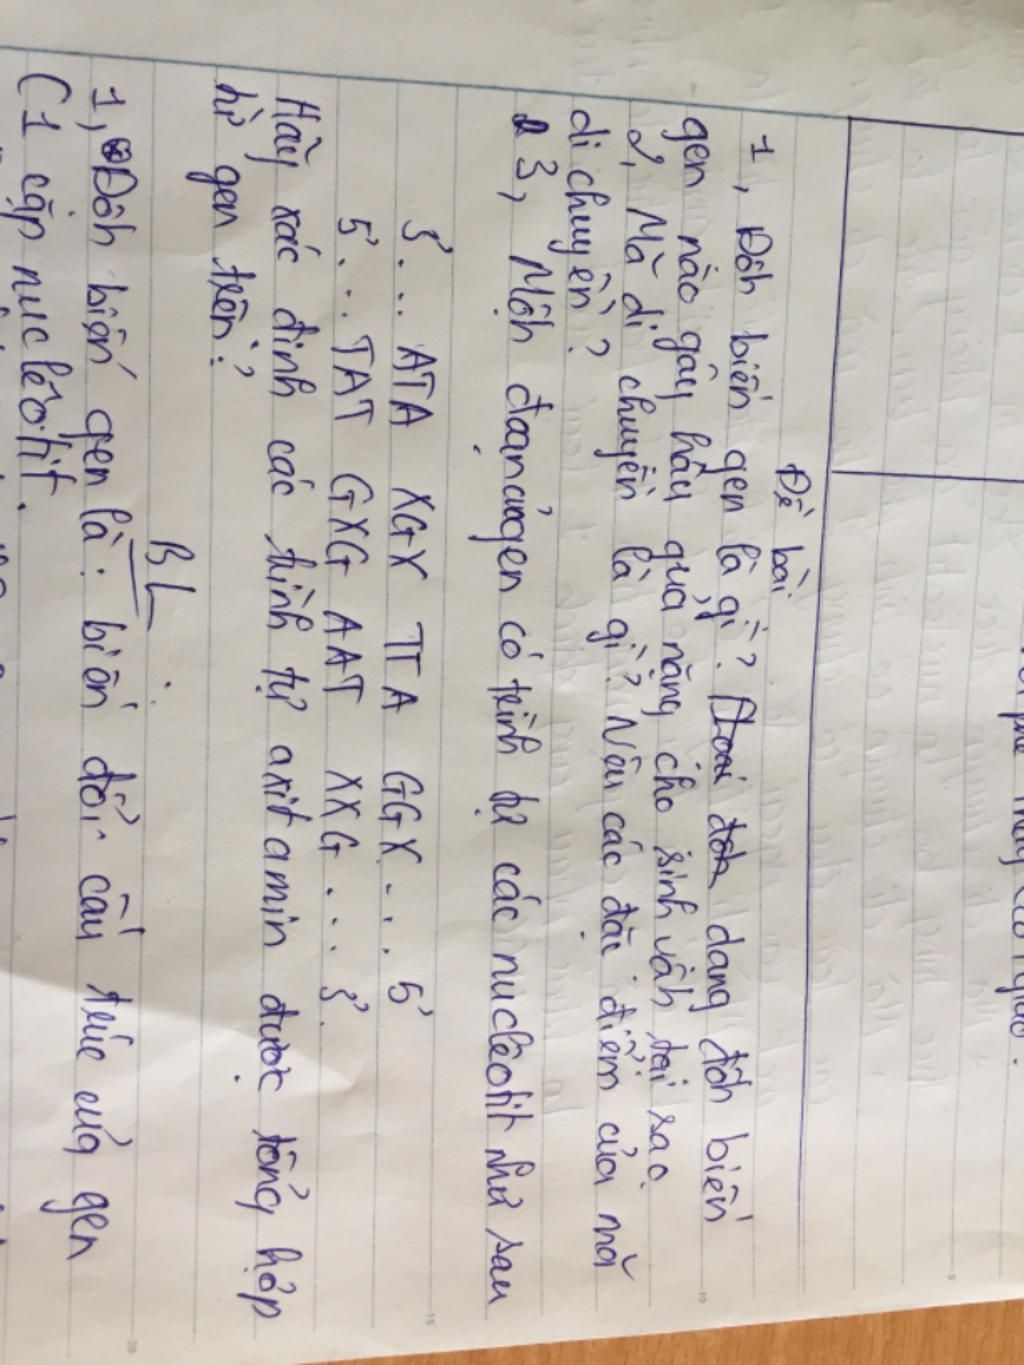 Đề bài
1, Đột biến gen là gì? dạng đột biến
gen nào gây hậu quả nặng cho sinh vật tại sao.
2, Mã di chuyền là gì? Nêu các đặc điểm của mã
di chuyền?
3, Một đoạn của gen có trình tự các nuclêotit như sau
3' ... ATA XGX TTA GGX ... 5'
5' ... TAT GXG AAT XXG ... 3'.
Hãy xác định các trình tự axit amin được tổng hợp
từ gen trên?
BL
1, Đột biến gen là: biến đổi cấu trúc của gen
(1 cặp nuclêotit.